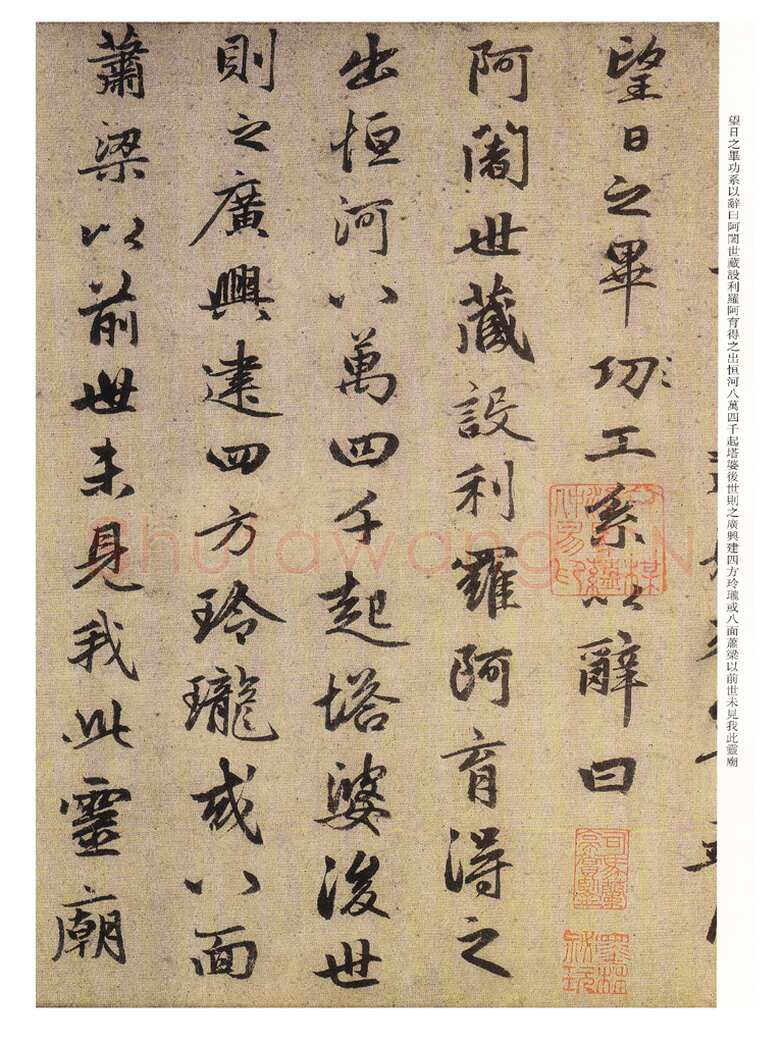 望日之畢功系以辭曰阿闍世藏設利羅阿育得之出恒河八萬四千起塔婆後世則之廣興建四方玲瓏或八面蕭梁以前世未見我此靈廟
望日之畢功工系以辭曰
阿闍世藏設利羅阿育得之
出恒河八萬四千起塔婆後世
則之廣興建四方玲瓏或八面
蕭梁以前世未見我此靈廟
Shufawang.CN